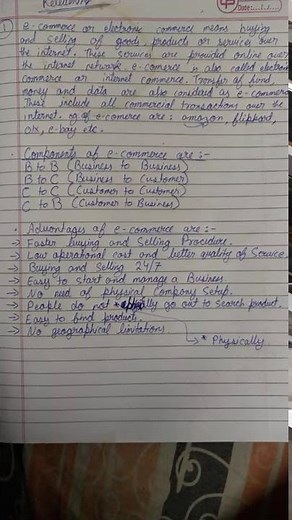 Date: 
① e-commerce or electronic commerce means buying
and selling of goods, products or services over
the internet. These services are provided online over
the internet network. e-comerce is also called electronic
commerce or internet commerce. Transfer of fund,
money and data are also considerd as e-commerce
These include all commercial transactions over the
internet. eg. of e-comerce are : amazon, flipkard,
olx, e-bay etc.
• Components of e-commerce are :-
B to B (Business to Business)
B to C (Business to Customer)
C to C (Customer to Customer)
C to B (Customer to Business)
• Advantages of e-commerce are :-
→ Faster buying and selling Procedure.
→ Low operational cost and better quality of Service.
→ Buying and Selling 24/7
→ Easy to start and manage a Business
→ No need of physical Company Setup.
→ People do not * go out to search product.
→ Easy to find products.
→ No geographical limitations
→ * Physically